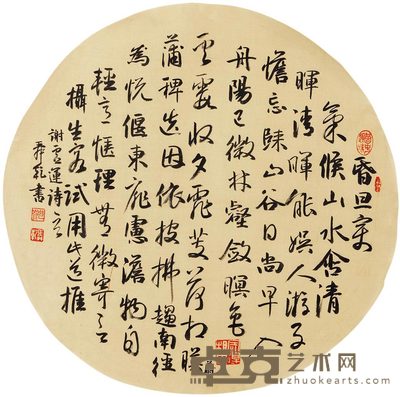 昏旦变
气候山水含清
晖清晖能娱人游子
憺忘归出谷日尚早入
舟阳已微林壑敛暝色
云霞收夕霏芰荷相映
蒲稗迭因依披拂趋南径
悦偃东扉虑澹物自
轻意惬理无违寄言
摄生客试用此道推
谢灵运诗
书
卓克艺术网
zhuokearts.com